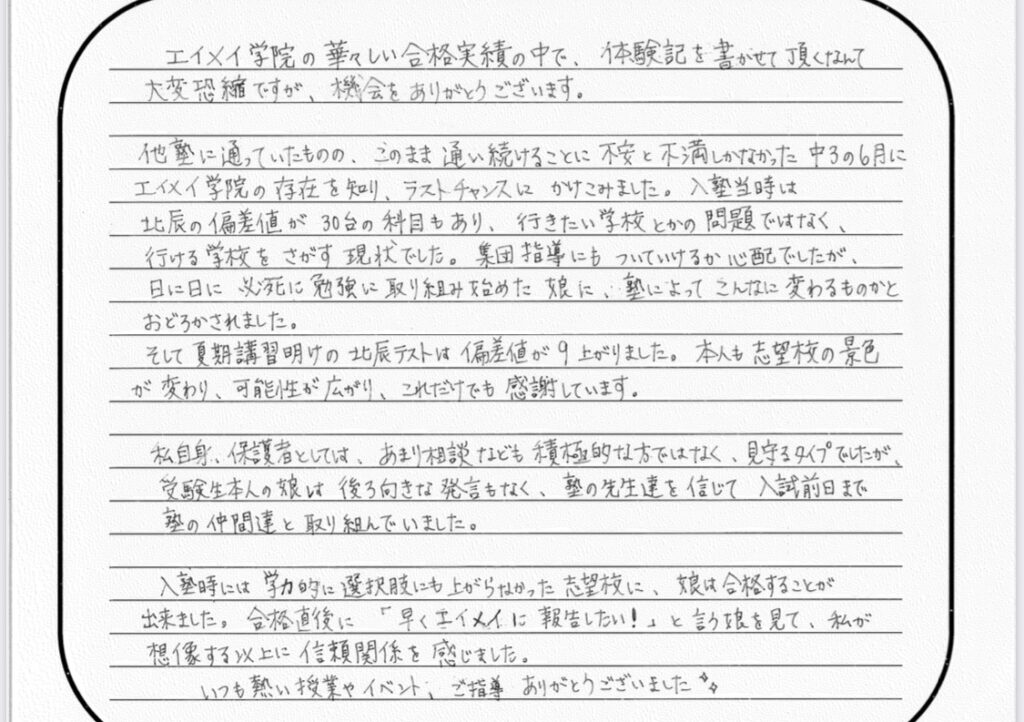 エイメイ学院の華々しい合格実績の中で、体験記を書かせて頂くなんて
大変恐縮ですが、機会をありがとうございます。
他塾に通っていたものの、このまま通い続けることに不安と不満しかなかった中3の6月に
エイメイ学院の存在を知り、ラストチャンスにかけこみました。入塾当時は
北辰の偏差値が30台の科目もあり、行きたい学校とかの問題ではなく、
行ける学校をさがす現状でした。集団指導にもついていけるか心配でしたが、
日に日に必死に勉強に取り組み始めた娘に、塾によってこんなに変わるものかと
おどろかされました。
そして夏期講習明けの北辰テストは偏差値が9上がりました。本人も志望校の景色
が変わり、可能性が広がり、これだけでも感謝しています。
私自身、保護者としては、あまり相談なども積極的な方ではなく、見守るタイプでしたが、
受験生本人の娘は後ろ向きな発言もなく、塾の先生達を信じて入試前日まで
塾の仲間達と取り組んでいました。
入塾時には学力的に選択肢にも上がらなかった志望校に、娘は合格することが
出来ました。合格直後に「早くエイメイに報告したい!」と言う娘を見て、私が
想像する以上に信頼関係を感じました。
いつも熱い授業やイベント、ご指導ありがとうございました